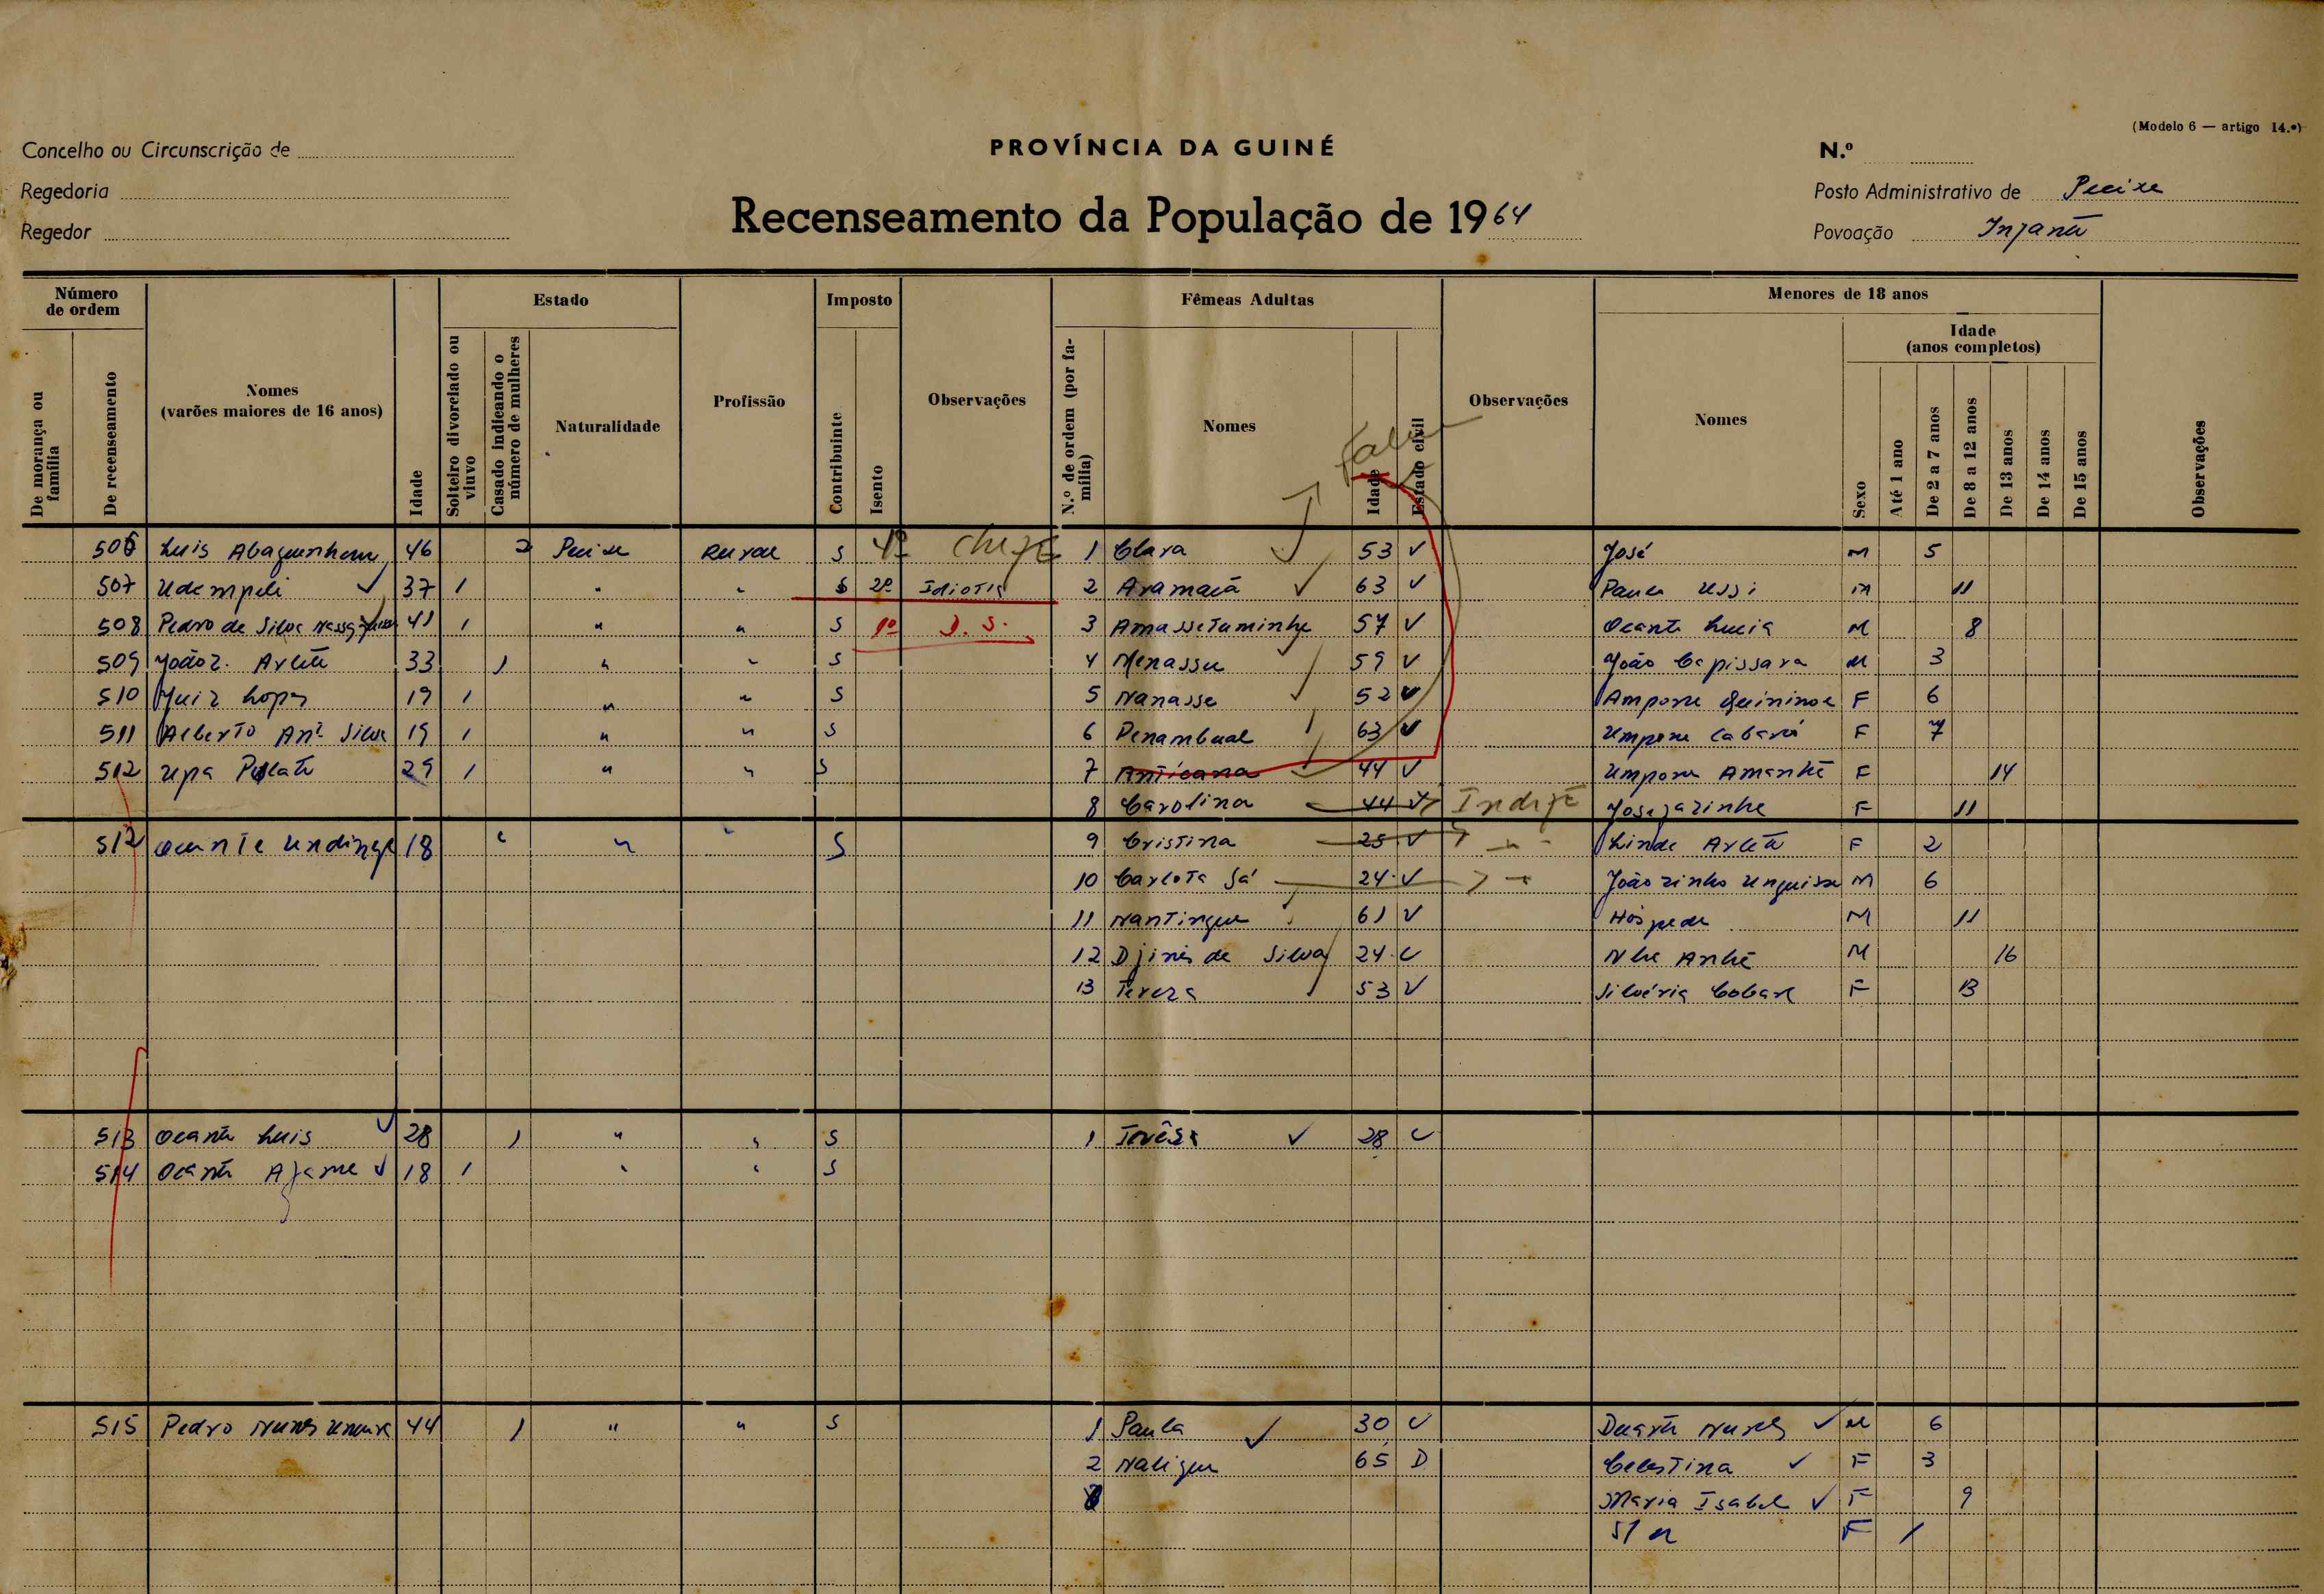 (Modelo 6 — artigo 14.º)
Concelho ou Circunscrição de
PROVÍNCIA DA GUINÉ
N.º
Regedoria
Recenseamento da População de 1964
Posto Administrativo de Pecixe
Regedor
Povoação
Número de ordem
De morança ou família
De recenseamento
Nomes (varões maiores de 16 anos)
Idade
Estado
Solteiro divorciado ou viuvo
Casado indicando o número de mulheres
Naturalidade
Profissão
Imposto
Contribuinte
Isento
Observações
Fêmeas Adultas
N.º de ordem (por família)
Nomes
Idade
Estado civil
Observações
Menores de 18 anos
Nomes
Sexo
Idade (anos completos)
Até 1 ano
De 2 a 7 anos
De 8 a 12 anos
De 13 anos
De 14 anos
De 15 anos
Observações
506 Luis 46 2 Pecixe Rural S 4º Chefe 1 Clara 53 V José M 5
507 Udempeli 37 1 " " S 2º Idiota 2 Aramacã 63 V Paulo Ussi M 11
508 Pedro da Silva 41 1 " " S 1º J. S. 3 Amassetuminhe 57 V Ocante Lucia M 8
509 João Z. Arlete 33 1 " " S 4 Menassu 59 V João Capissara M 3
510 Luiz Lopes 19 1 " " S 5 Nanasse 52 V F 6
511 Alberto Antº Silva 19 1 " " S 6 Penambual 63 V F 7
512 Upa 29 1 " " S 7 Anticana 44 V F 14
8 Carolina 44 V F 11
512 Ocante 18 " " " S 9 Cristina 25 V Linda Arlete F 2
10 Carlota Sá 24 V Joãozinho M 6
11 Nantingue 61 V Hóspede M 11
12 Djinés da Silva 24 C M 16
13 Tereza 53 V Silvéria F 13
513 Ocante Luis 28 1 " " S 1 28 C
514 Ocante 18 1 " " S
515 Pedro Nunes 44 1 " " S 1 Paula 30 C Duarte Nunes M 6
2 Naligue 65 D Celestina F 3
Maria Isabel F 9
S/N F 1